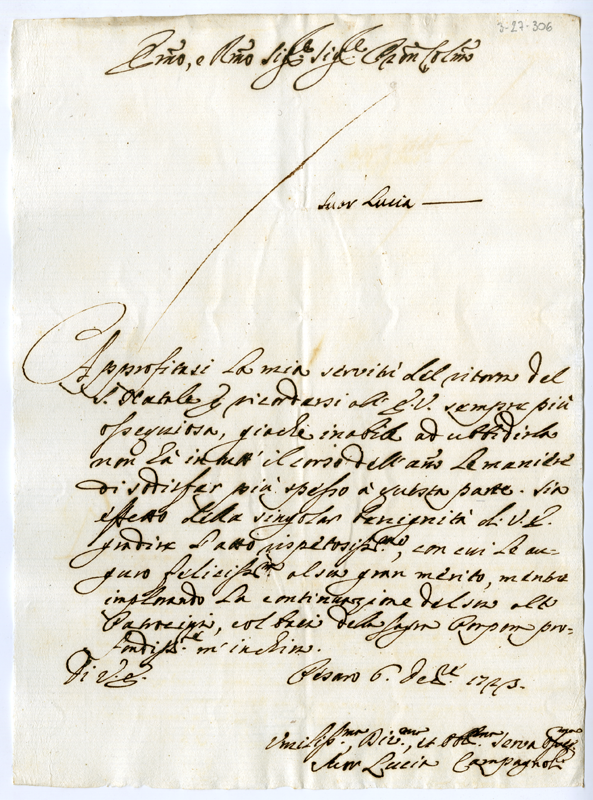 3-27-306
Emo, e Rmo Sigr. Sigr. Pron Colmo
Suor Lucia
Approfitasi la mia servitù del ritorno del
S. Natale p ricordarsi all' E.V. sempre più
ossequiosa, giachè inabile ad ubbidirla
non hà in tutt' il corso dell' año le maniere
di sodisfar più spesso à questa parte. Sia
effetto della singolar benignità di V.E.
gradire l'atto rispetosissmo, con cui le au-
guro felicissme al suo gran merito, mentre
implorando la continuazione del suo alto
Patrocinio, col bacio della Sagra Porpora pro-
fondisste m' inchino.
Di V.E.
Pesaro 6. 1743.
Umilissma, Divma, et Obbma Serva
Suor Lucia Campagnoli